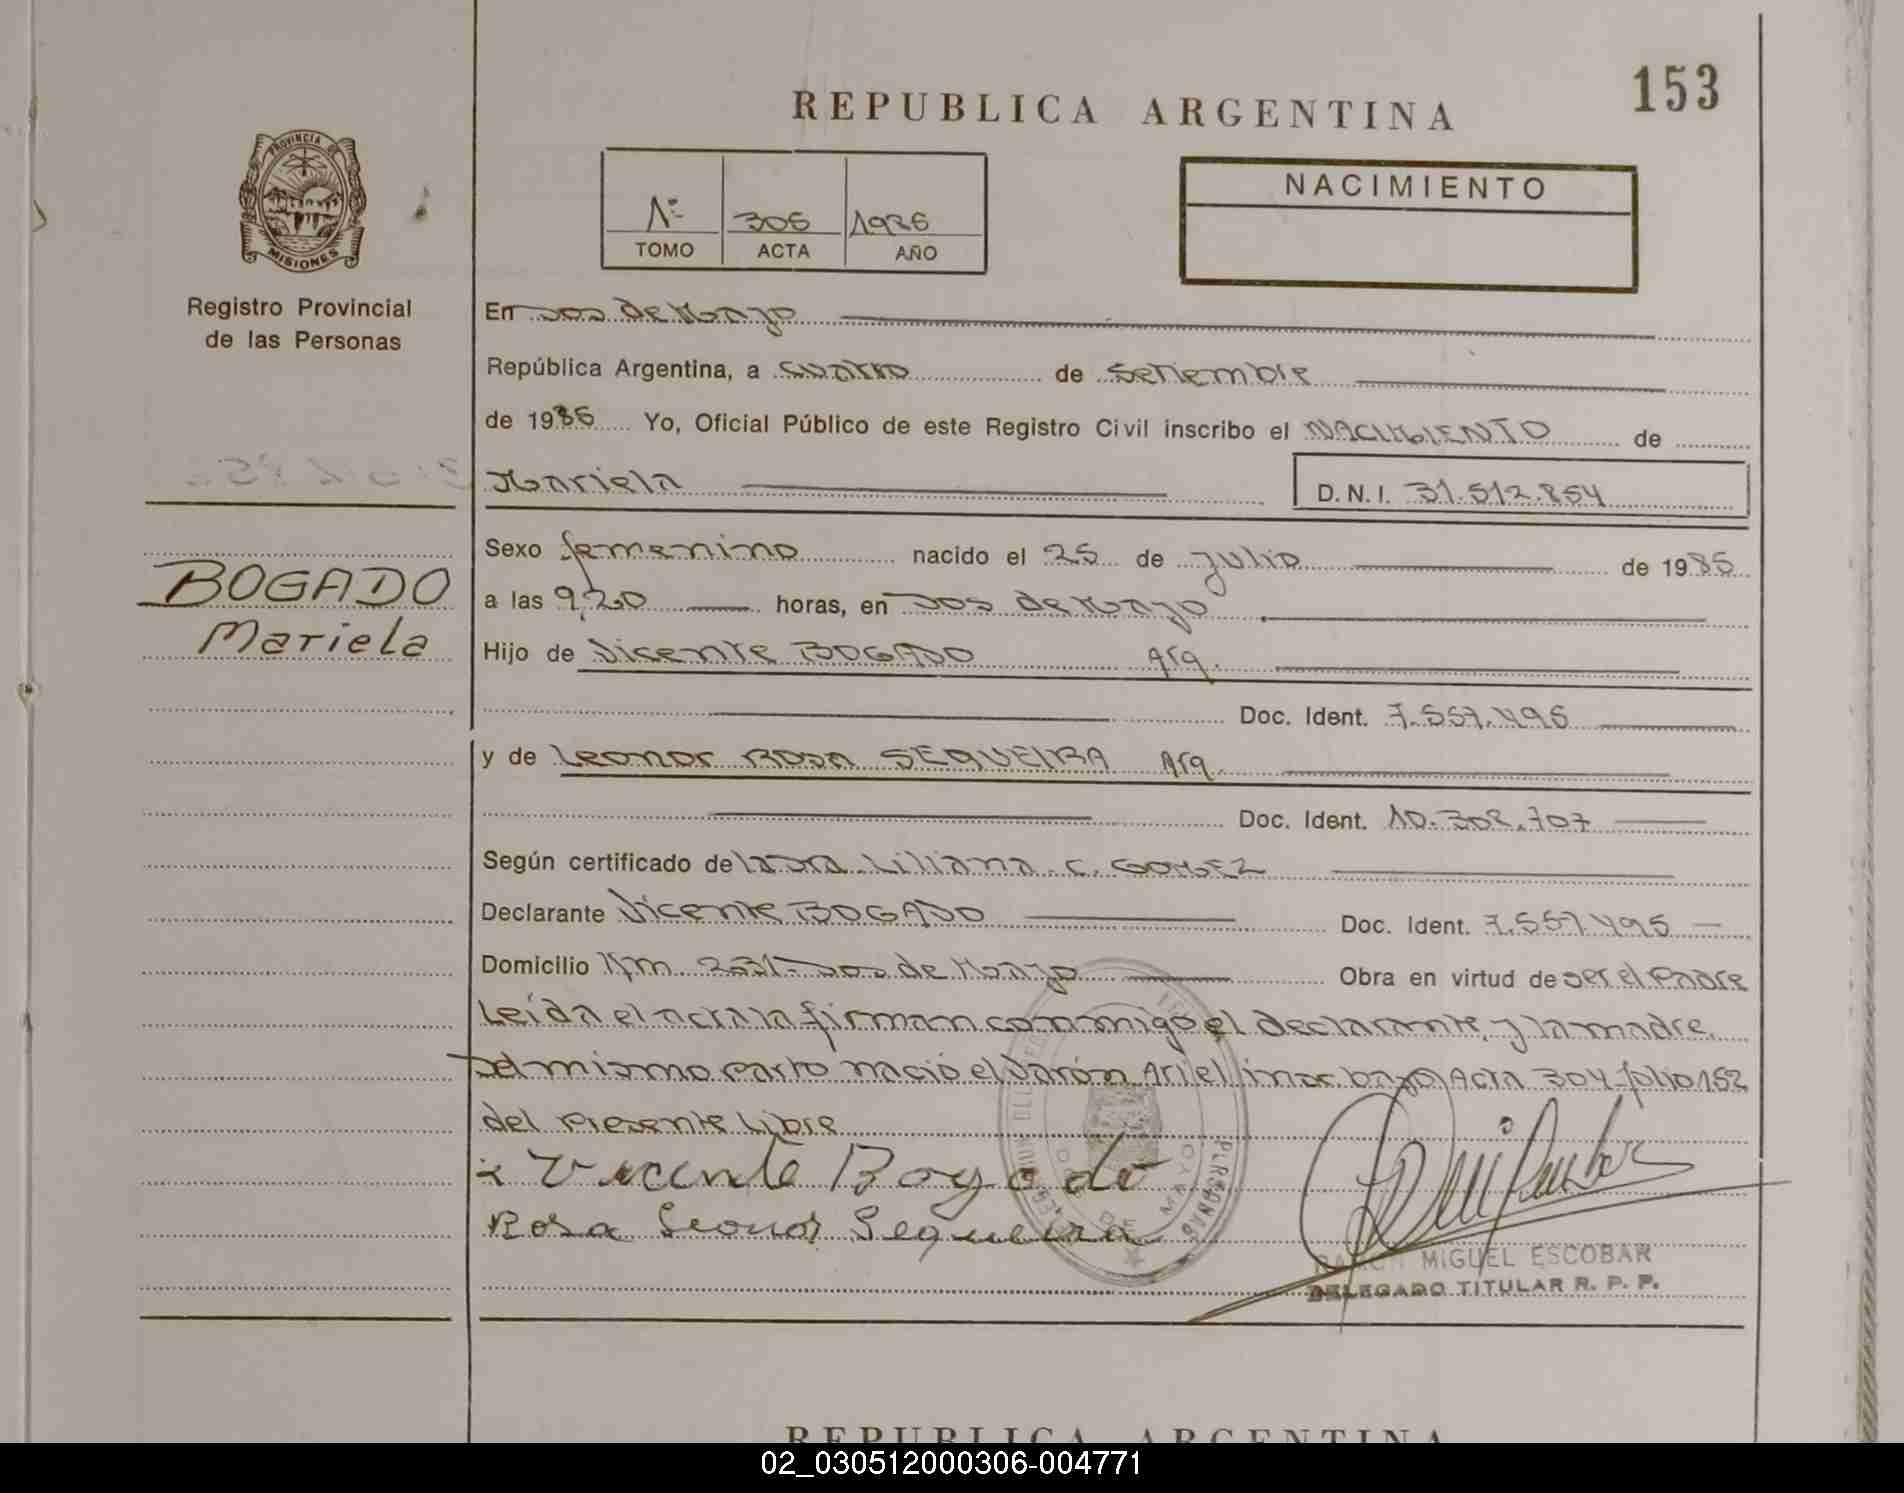 153
REPUBLICA ARGENTINA
PROVINCIA DE
MISIONES
Registro Provincial
de las Personas
1º
TOMO
ACTA
AÑO
NACIMIENTO
En Dos de Mayo
República Argentina, a cuatro de Setiembre
de 1986 Yo, Oficial Público de este Registro Civil inscribo el NACIMIENTO de
Mariela D.N.I. 31.512.854
BOGADO
Mariela
Sexo femenino nacido el 25 de julio de 19
a las 9,20 horas, en Dos de Mayo
Hijo de Vicente BOGADO Arg.
Doc. Ident. 7.557.495
y de Leonor Rosa SEQUEIRA Arg.
Doc. Ident. 10.302.707
Según certificado de Liliana C. GOMEZ
Declarante Vicente BOGADO Doc. Ident. 7.557.495
Domicilio Km. Dos de Mayo Obra en virtud de ser el Padre
Leída el acta la firman conmigo el declarante y la madre.
Del mismo parto nació el varón Ariel insc. bajo Acta 304 folio 152
del presente Libro
Vicente Bogado
Rosa Leonor Sequeira
MIGUEL ESCOBAR
DELEGADO TITULAR R. P. P.
REPUBLICA ARGENTINA
02_030512000306-004771